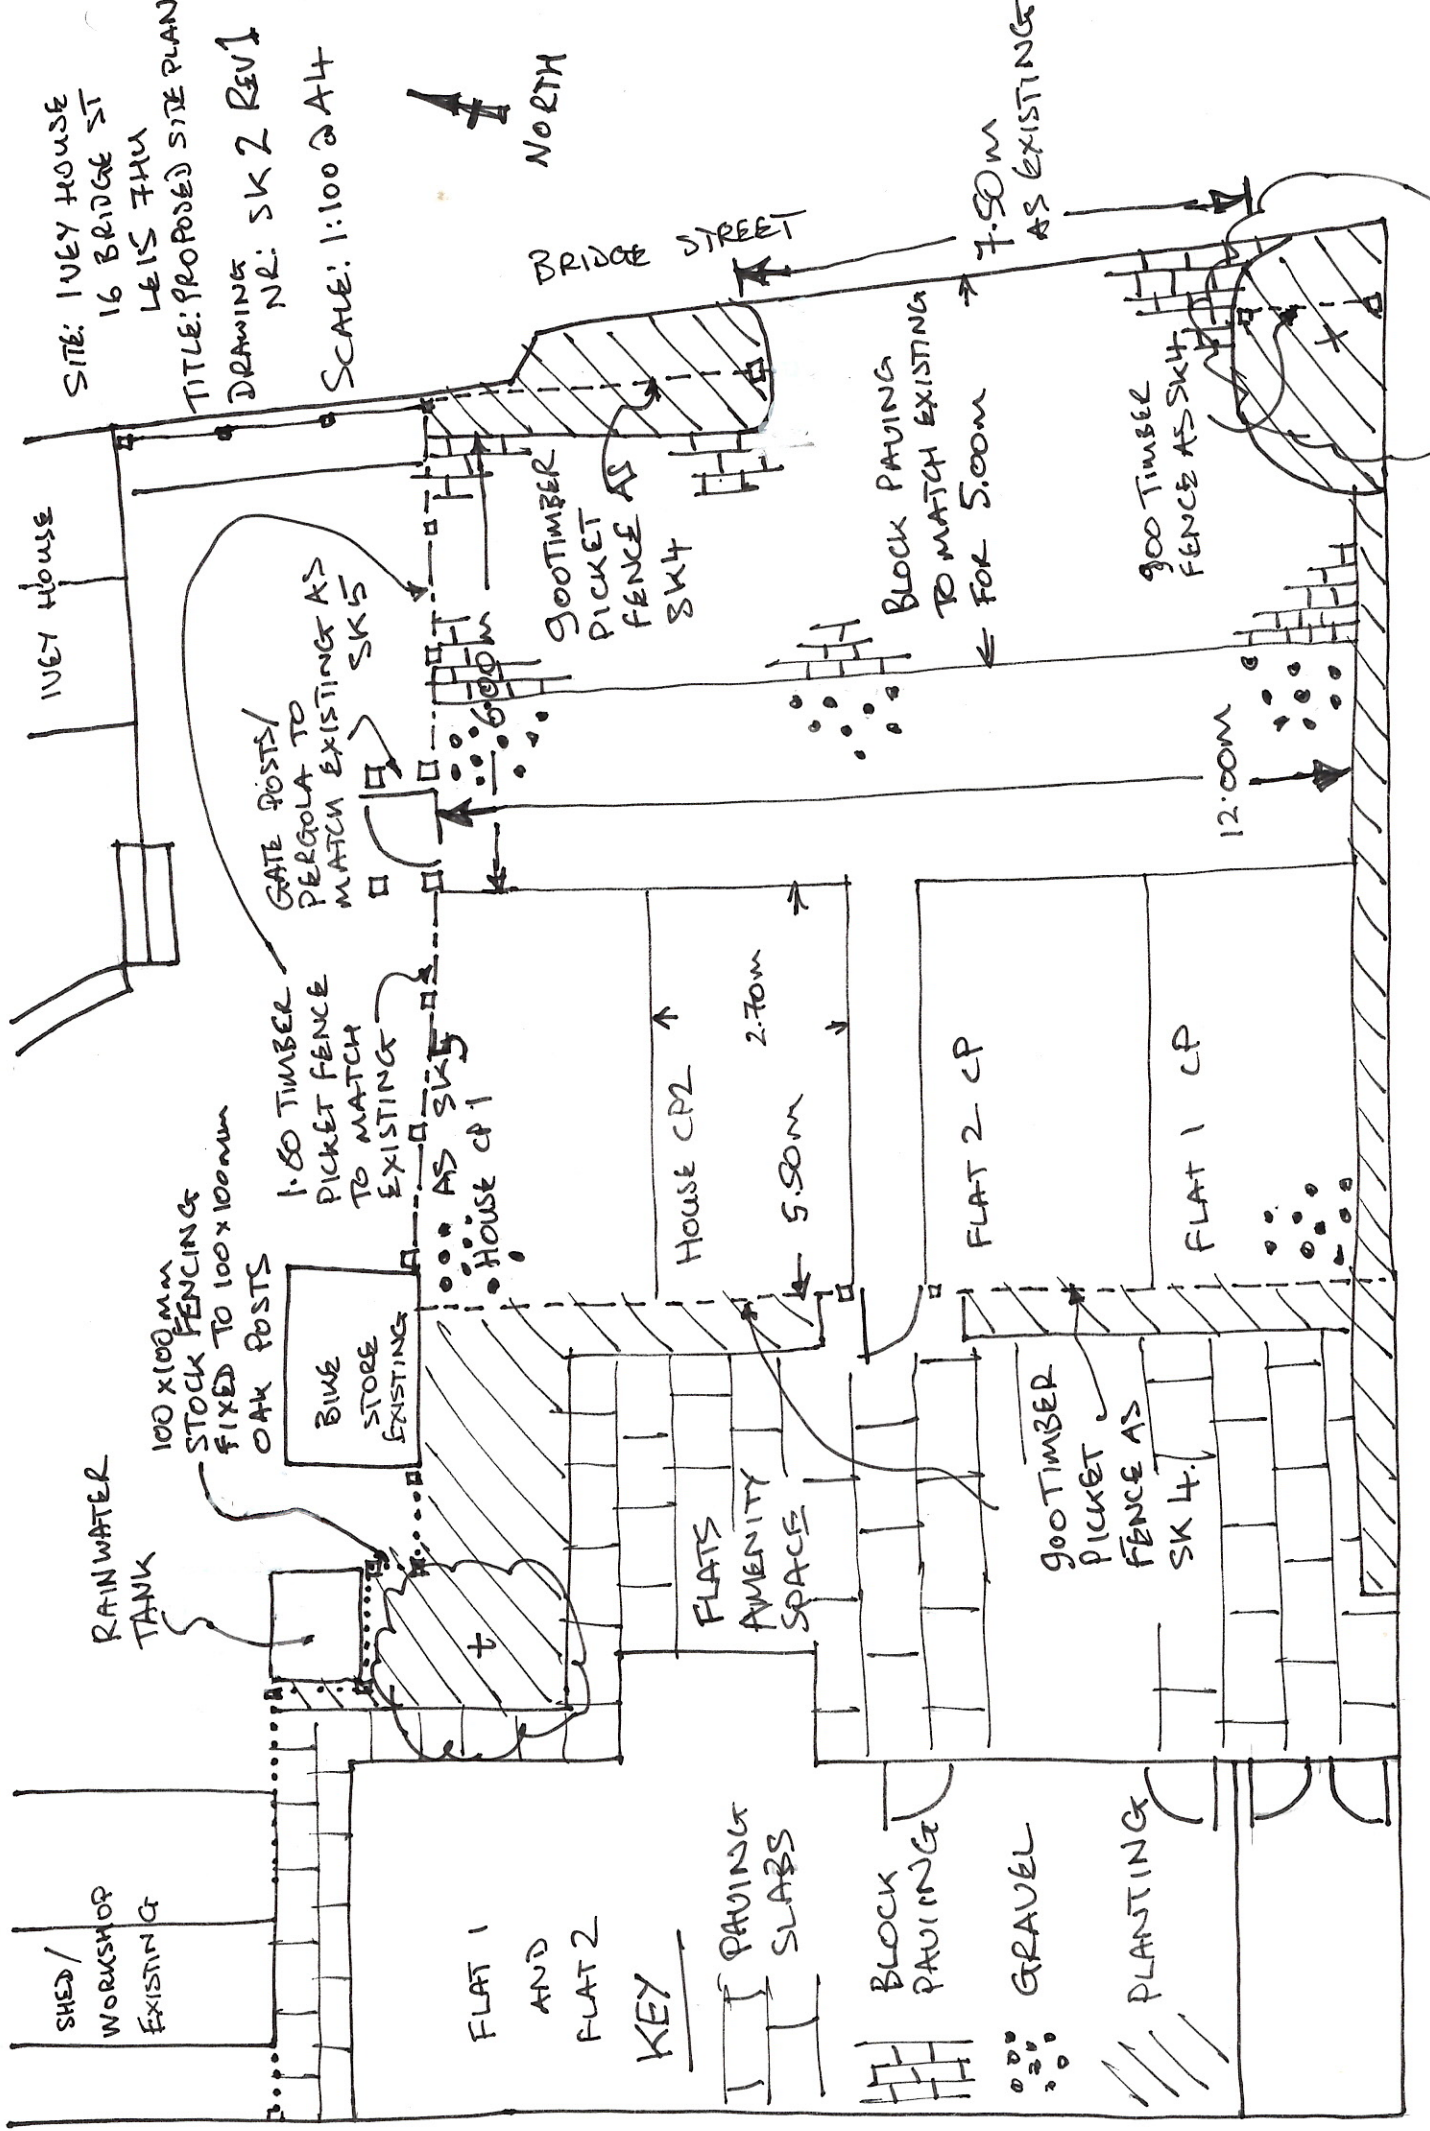 SITE: IVEY HOUSE
16 BRIDGE ST
LE15 7HU
TITLE: PROPOSED SITE PLAN
DRAWING
NR: SK2 REV1
SCALE: 1:100 @ A4
NORTH
BRIDGE STREET
7.50m
AS EXISTING
IVEY HOUSE
GATE POSTS/
PERGOLA TO
MATCH EXISTING AS
SK5
6.00m
900 TIMBER
PICKET
FENCE AS
SK4
BLOCK PAVING
TO MATCH EXISTING
FOR 5.00m
900 TIMBER
FENCE AS SK4
12.00m
1.80 TIMBER
PICKET FENCE
TO MATCH
EXISTING
AS SK5
HOUSE CP1
HOUSE CP2
2.70m
5.50m
FLAT 2 CP
FLAT 1 CP
100x100mm
STOCK FENCING
FIXED TO 100x100mm
OAK POSTS
BIKE
STORE
EXISTING
RAINWATER
TANK
FLATS
AMENITY
SPACE
900 TIMBER
PICKET
FENCE AS
SK4.
SHED/
WORKSHOP
EXISTING
FLAT 1
AND
FLAT 2
KEY
PAVING
SLABS
BLOCK
PAVING
GRAVEL
PLANTING